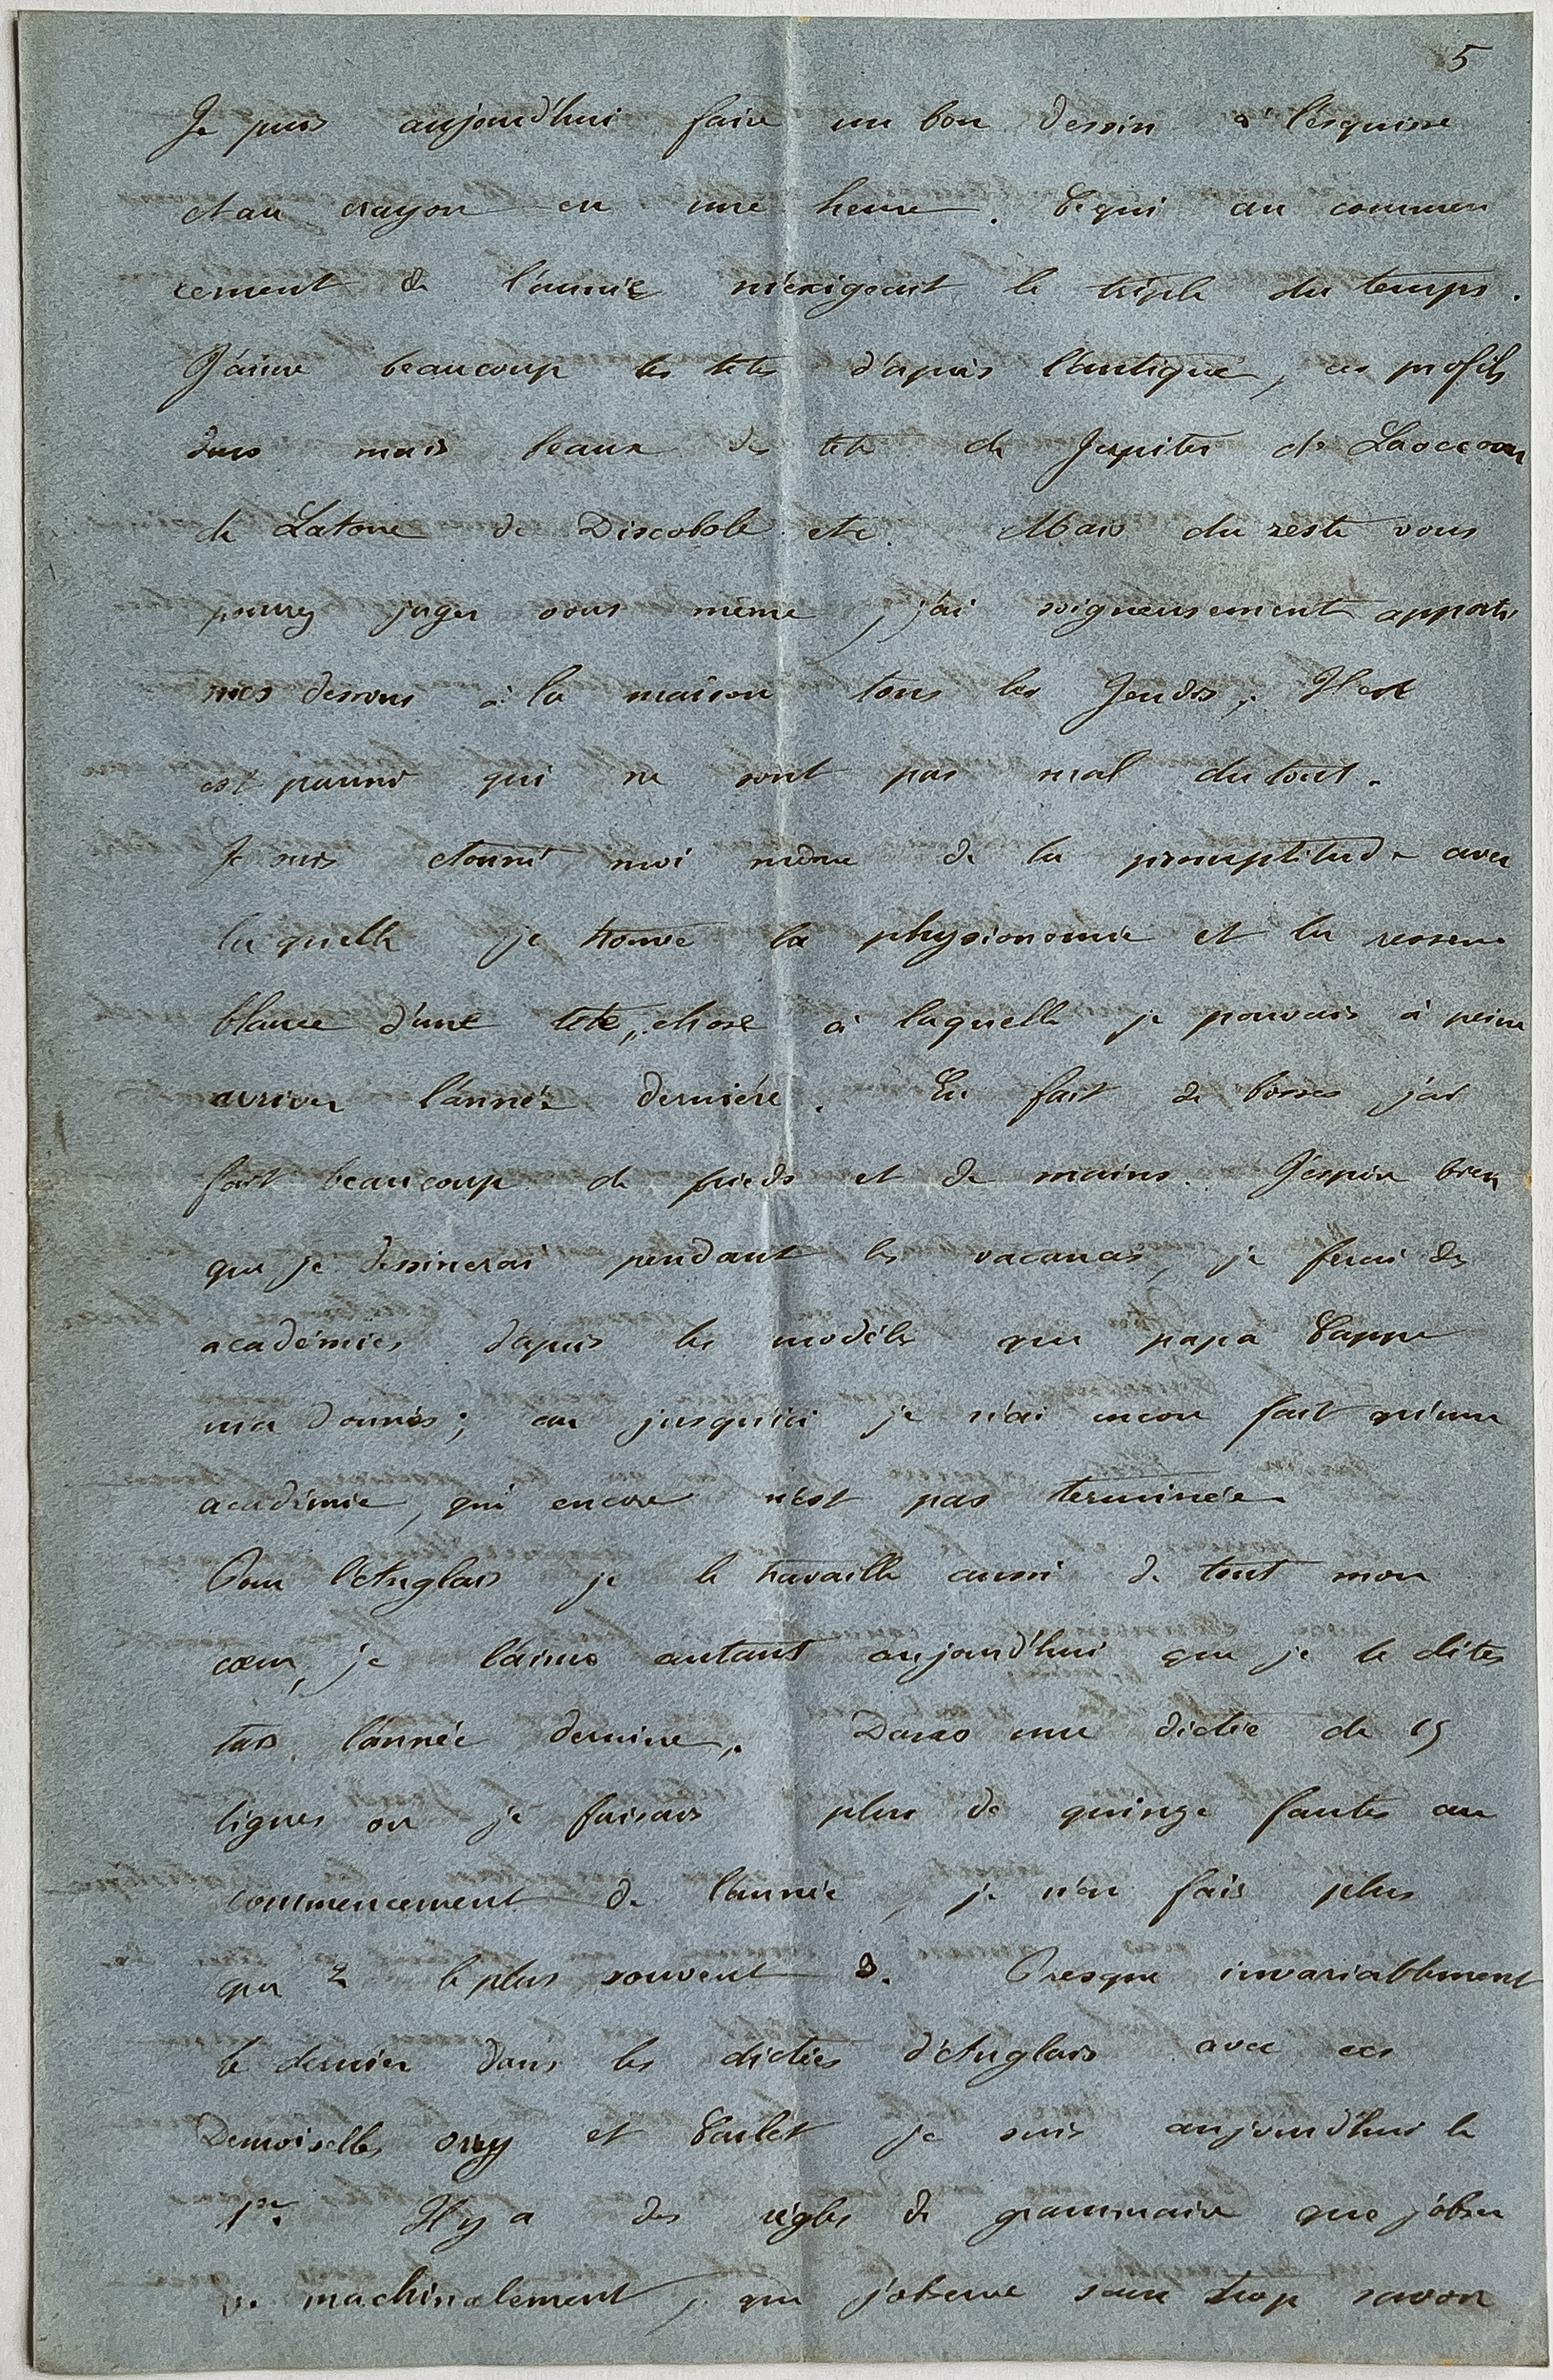 5
Je puis aujourd'hui faire un bon dessin à l'esquisse
et au crayon en une heure. Ce qui au commen
cement de l'année m'exigeait le triple du temps.
J'aime beaucoup les têtes d'après l'antique, ces profils
durs mais beaux de tête de Jupiter de Laocoon
de Latone de Discobole etc. Mais du reste vous
pourrez juger vous même, j'ai soigneusement apporté
mes dessins à la maison tous les Jeudis. Il est
est parmi qui ne sont pas mal du tout.
Je suis étonné moi même de la promptitude avec
laquelle je trouve la physionomie et la ressem
blance d'une tête, chose à laquelle je pouvais à peine
arriver l'année dernière. En fait de bosses j'ai
fait beaucoup de pieds et de mains. J'espère bien
que je dessinerai pendant les vacances, je ferai des
académies d'après les modèles que papa
m'a donnés; car jusqu'ici je n'ai encore fait qu'une
académie, qui encore n'est pas terminée
Pour l'Anglais je le travaille aussi de tout mon
cœur, je l'aime autant aujourd'hui que je le détes
tais l'année dernière. Dans une dictée de 15
lignes où je faisais plus de quinze fautes au
commencement de l'année, je n'en fais plus
que 2 le plus souvent 3. Presque invariablement
le dernier dans les dictées d'Anglais avec ces
Demoiselles Orsy et Carlet je suis aujourd'hui le
1er. Il y a des règles de grammaire que j'obser
ve machinalement, que j'observe sans trop savoir